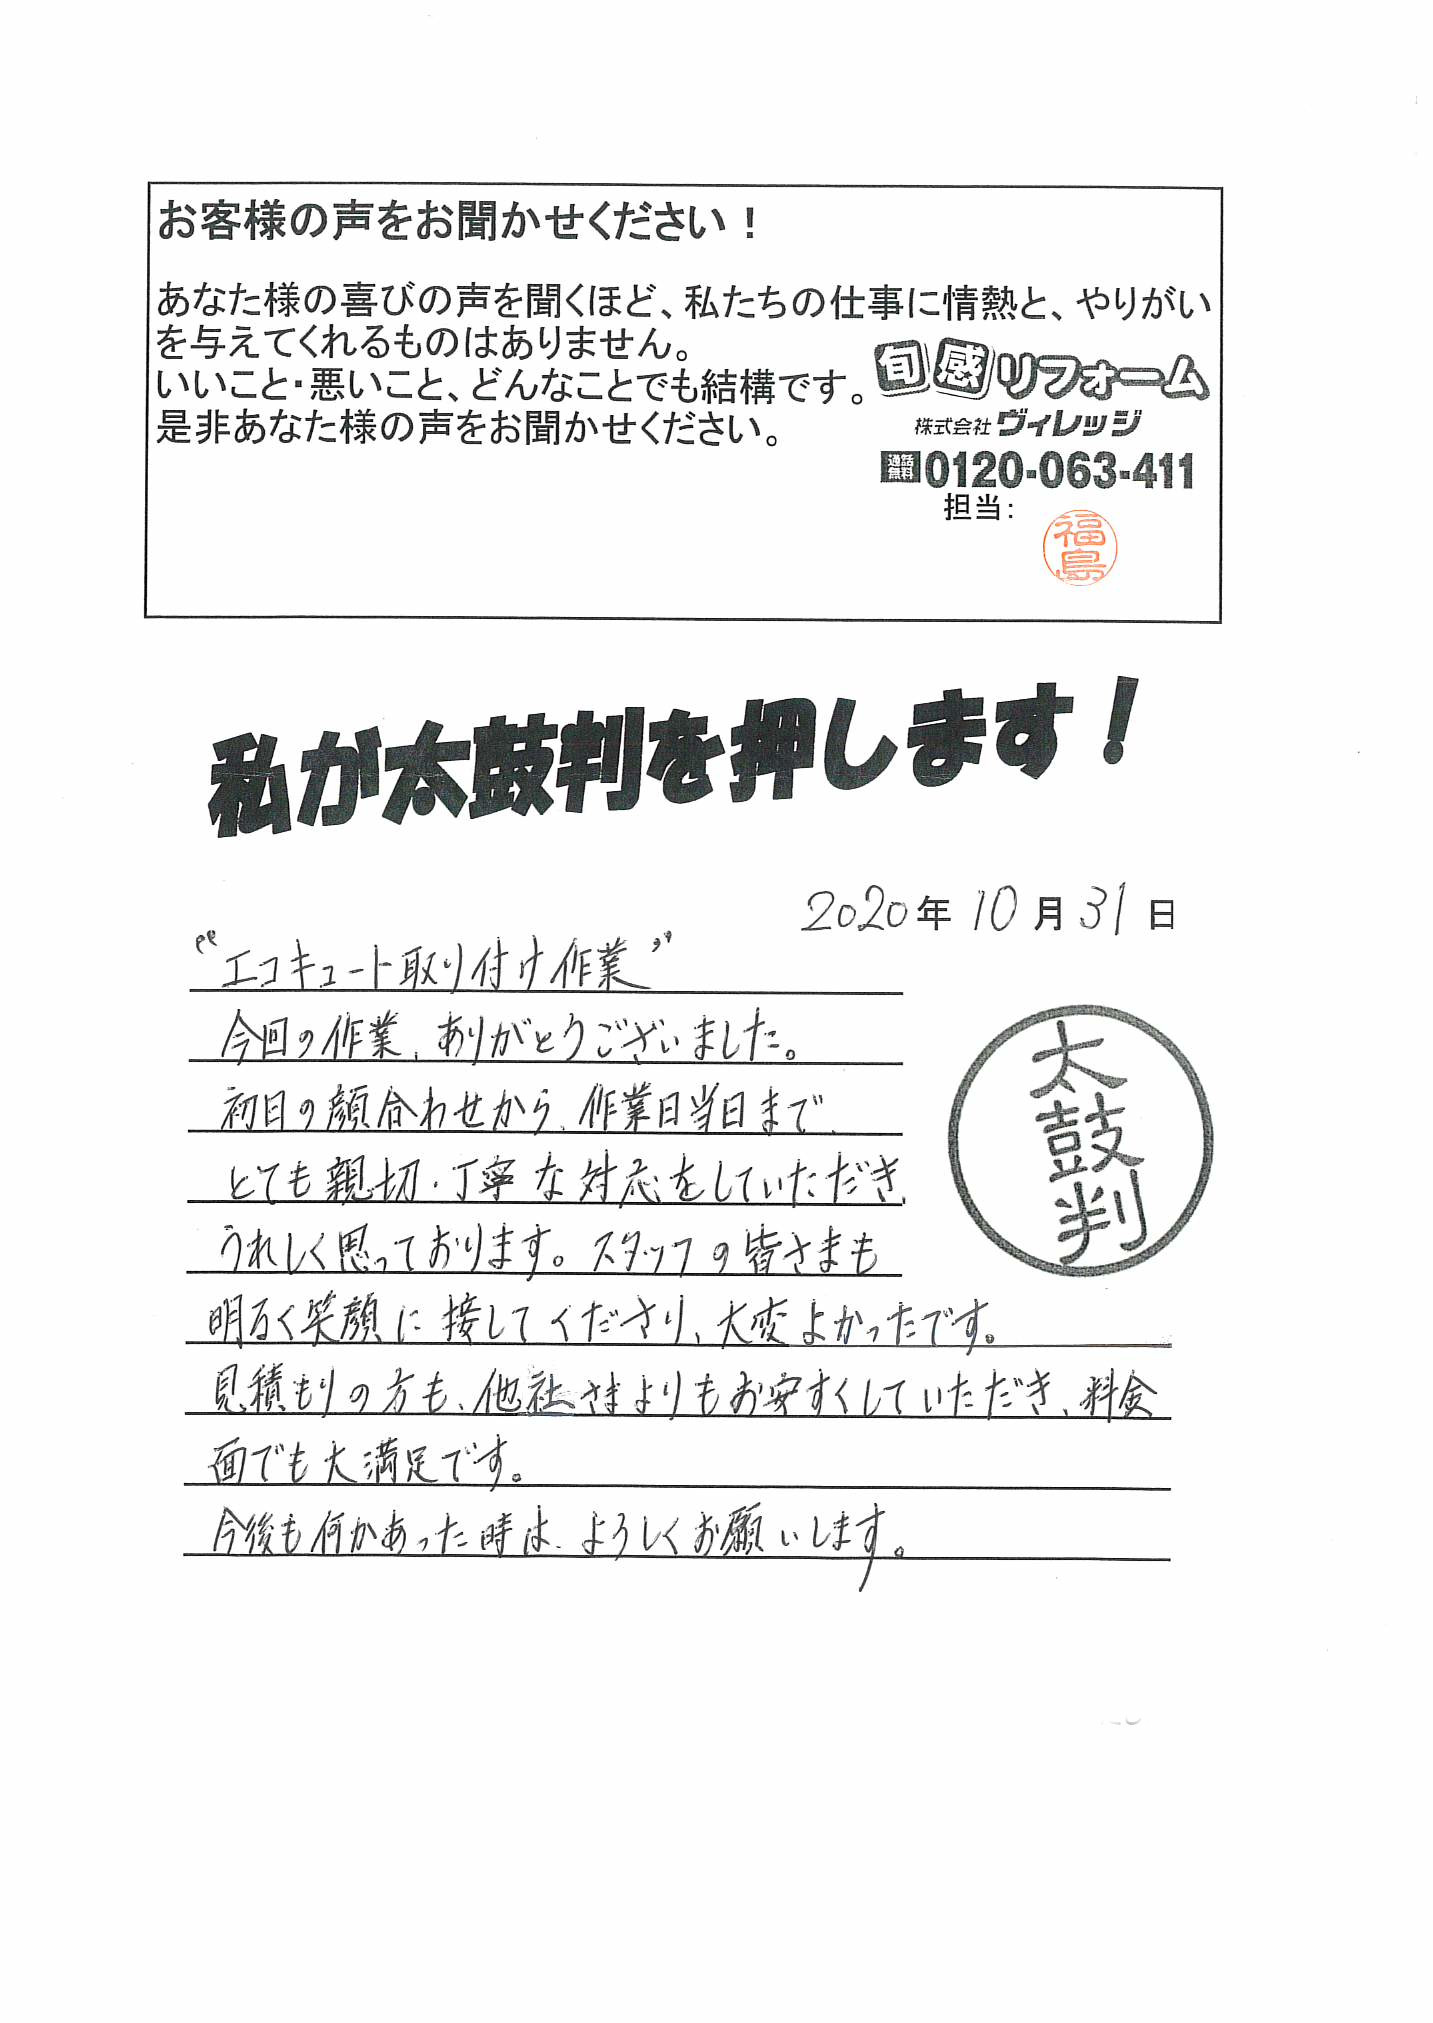 お客様の声をお聞かせください！
あなた様の喜びの声を聞くほど、私たちの仕事に情熱と、やりがい
を与えてくれるものはありません。
いいこと・悪いこと、どんなことでも結構です。
是非あなた様の声をお聞かせください。
旬感リフォーム
株式会社ヴィレッジ
通話無料 0120-063-411
担当：
福島
私が太鼓判を押します！
2020年10月31日
“エコキュート取り付け作業”
今回の作業、ありがとうございました。
初日の顔合わせから、作業日当日まで、
とても親切・丁寧な対応をしていただき、
うれしく思っております。スタッフの皆さまも
明るく笑顔に接してくださり、大変よかったです。
見積もりの方も、他社さまよりもお安すくしていただき、料金
面でも大満足です。
今後も何かあった時は、よろしくお願いします。
太鼓判